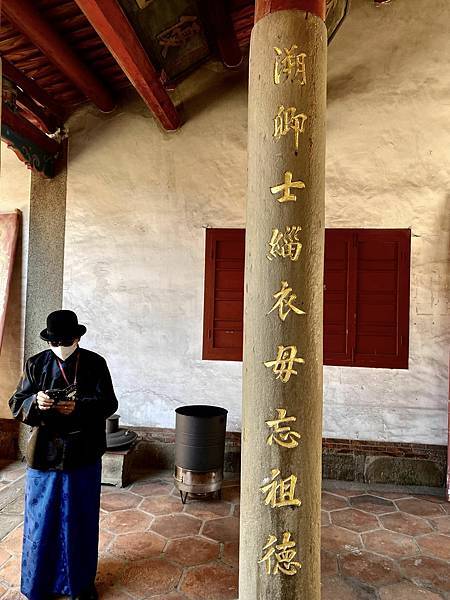 溯卿士緇衣毋忘祖德